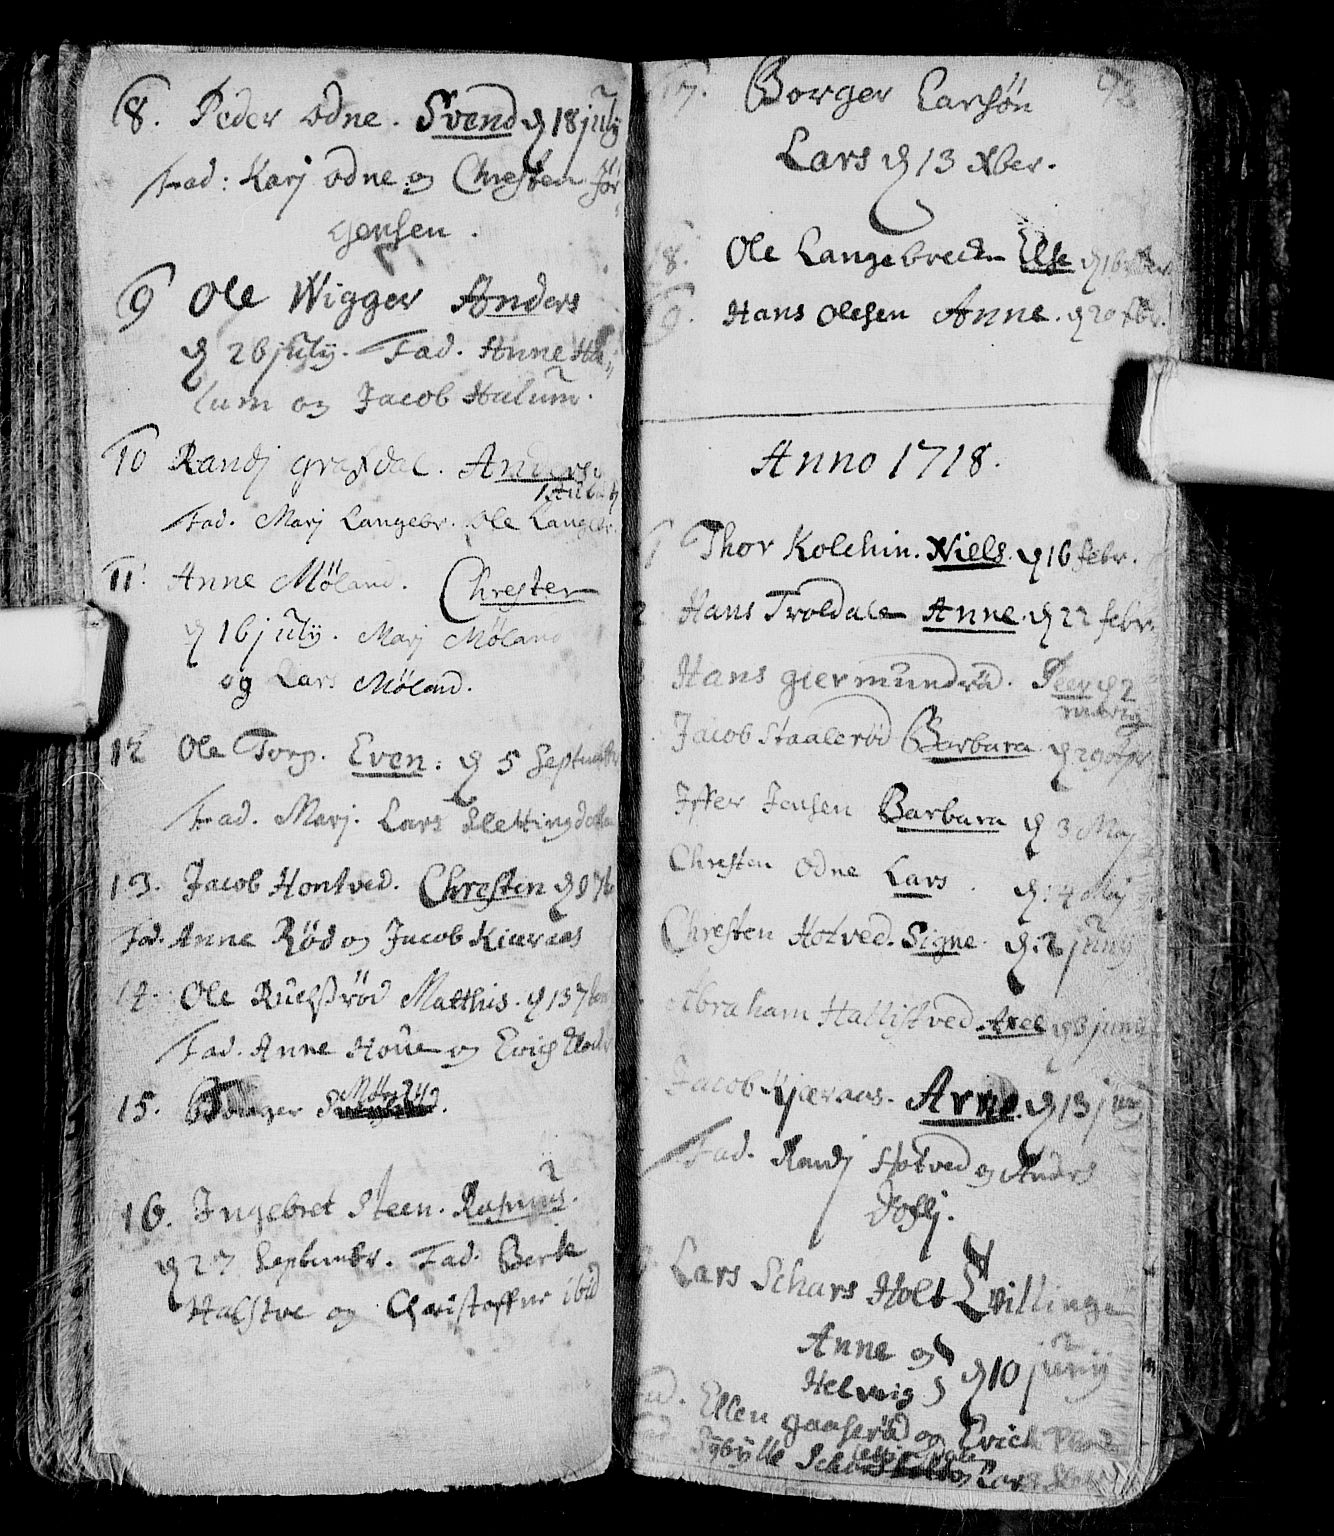 8. Peder Odne. Svend d 18 july
Fad: Karj odne og Chresten Jør
gensen.
9 Ole Wigger Anders
d 26 july. Fad. Anne Ha
lum og Jacob Halum.
10 Randj grafdal. Anders
Fad. Marj Langebr. Ole Langebr.
11. Anne Møland. Chresten
d 16 july. Marj Møland
og Lars Møland.
12 Ole Torp. Even: d 5 Septembr
Fad. Marj. Lars
13. Jacob Hontved. Chresten d
Fad. Anne Rød og Jacob Kiæraas
14. Ole Matthis. d 13 7br
Fad. Anne Houe og Erich
15.
16. Ingebret Steen. Rasmus.
d 27 Septembr. Fad. Berte
Halstve og Christoffer ibid
93
17. Borger Larsøn
Lars d 13 Xber.
18. Ole Langebrechn Else d 16
19. Hans Olesen Anne. d 20
Anno 1718.
1 Thor Kolchin. Niels. d 16 febr.
2. Hans Troldale Anne. d 22 febr.
Hans giermundrød. Peer d 2
Jacob Staalerød Barbara d 29 Apr
Iffer Jensen Barbara d 3 Maj
Chresten Odne Lars. d: 4 Maj
Chresten Hotved. Signe. d. 2 junij
Abraham Hallistved. Axel d 3 junij
Jacob Kjæraas. Arne. d 13 junij
Fad. Randj Hotved og Anders
Lars Schars Holt Tvillinge
Anne og
Helwig d 10 junij
Fad. Ellen gaaserød og Erich
Sybylle Lars